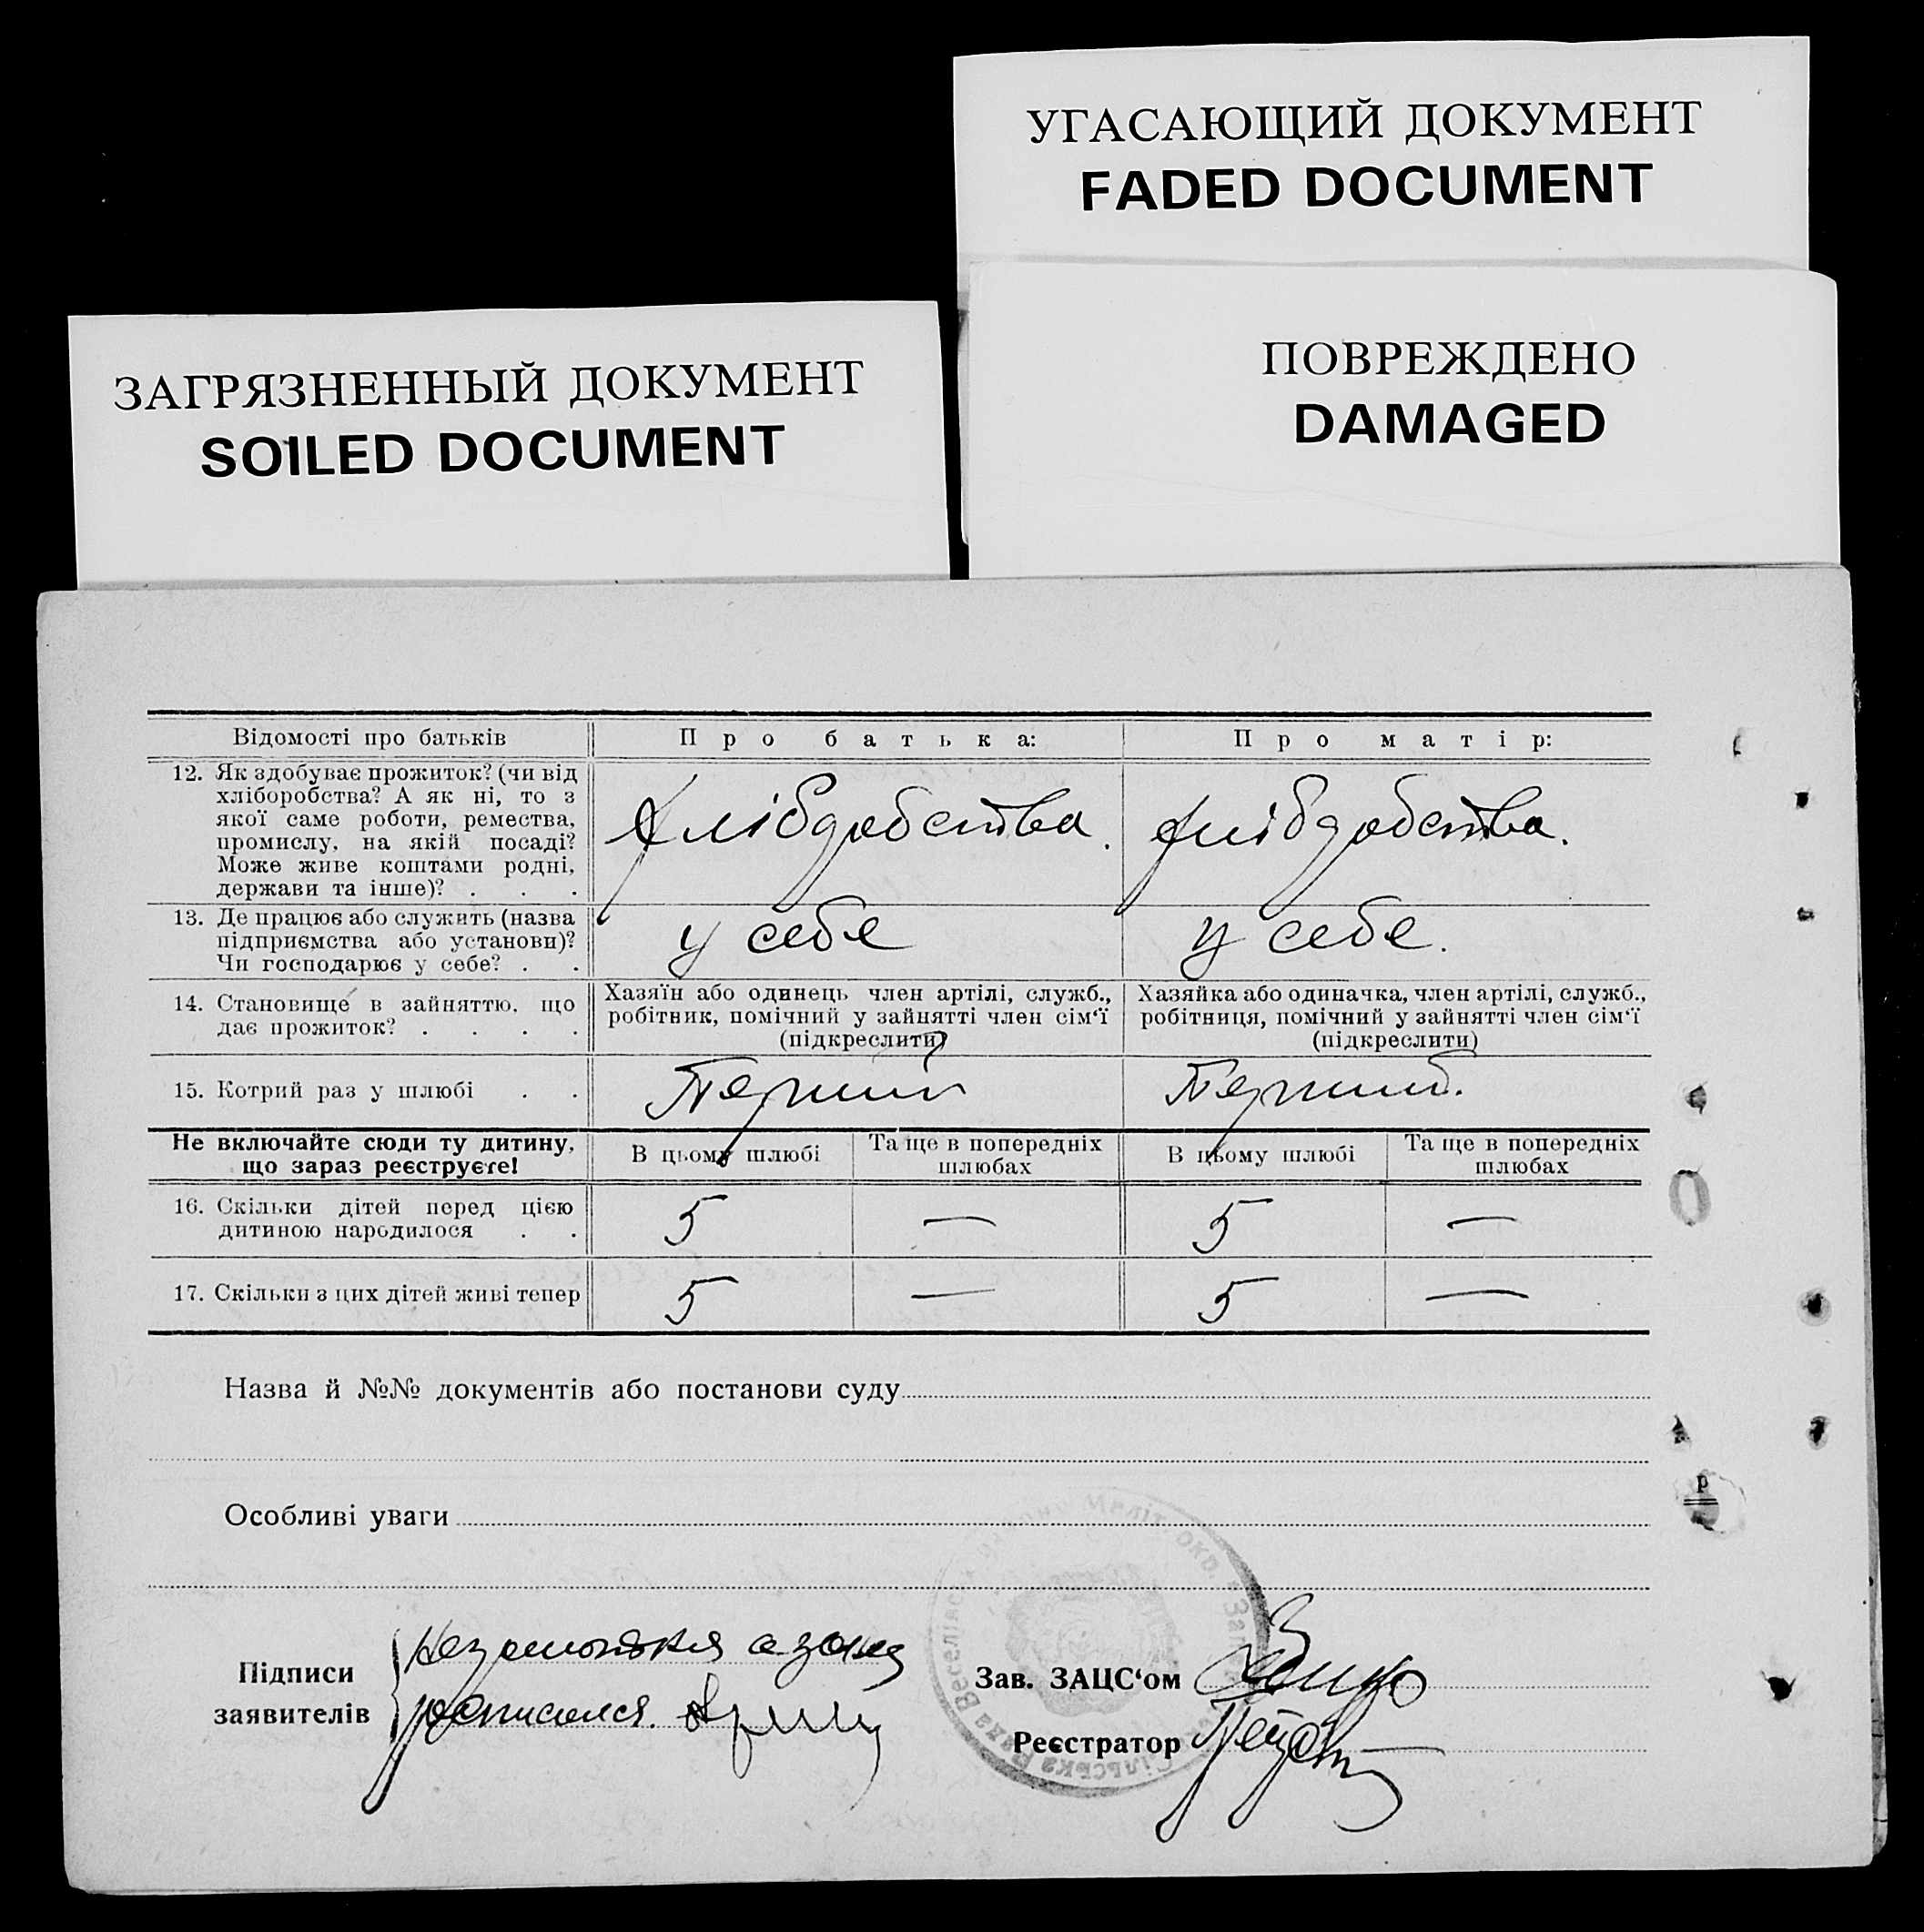 УГАСАЮЩИЙ ДОКУМЕНТ
FADED DOCUMENT
ПОВРЕЖДЕНО
DAMAGED
ЗАГРЯЗНЕННЫЙ ДОКУМЕНТ
SOILED DOCUMENT
Відомості про батьків
Про батька:
Про матір:
12. Як здобуває прожиток? (чи від
хліборобства? А як ні, то з
якої саме роботи, ремества,
промислу, на якій посаді?
Може живе коштами родні,
держави та інше)? . . .
Хлібдробства.
Хлібдробства.
13. Де працює або служить (назва
підприємства або установи)?
Чи господарює у себе? . .
у себе
у себе.
14. Становище в зайняттю, що
дає прожиток? . . . .
Хазяїн або одинець член артілі, служб.,
робітник, помічний у зайнятті член сім‘ї
(підкреслити)
Хазяйка або одиначка, член артілі, служб.,
робітниця, помічний у зайнятті член сім‘ї
(підкреслити)
15. Котрий раз у шлюбі . .
Перший
Перший.
Не включайте сюди ту дитину,
що зараз реєструєте!
В цьому шлюбі
Та ще в попередніх
шлюбах
В цьому шлюбі
Та ще в попередніх
шлюбах
16. Скільки дітей перед цією
дитиною народилося . .
5 — 5 —
17. Скільки з цих дітей живі тепер
5 — 5 —
Назва й №№ документів або постанови суду
Особливі уваги
Підписи
заявителів
росписался.
Зав. ЗАЦС‘ом
Реєстратор
Сільська Рада Меліт. окр.
р